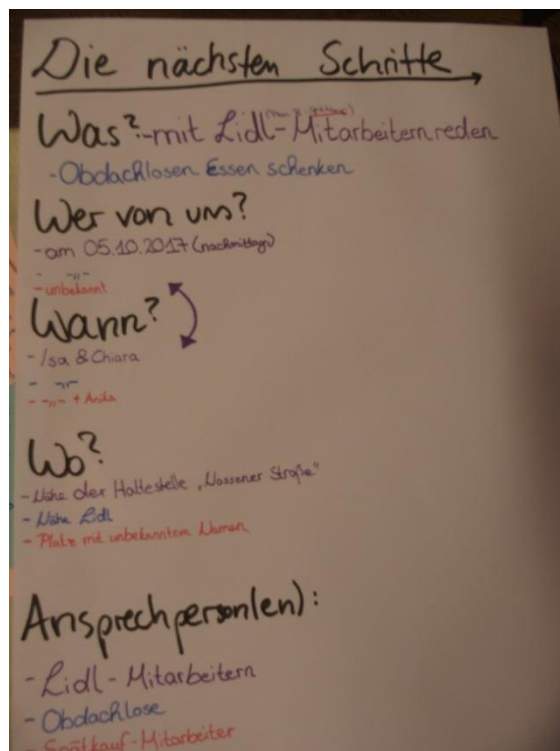 Die nächsten Schritte
Was? -mit Lidl-Mitarbeitern reden
-Obdachlosen Essen schenken
Wer von uns?
-am 05.10.2017 (nachmittags)
- -„-
-unbekannt
Wann?
-Isa & Chiara
- -„-
- -„- + Anika
Wo?
-Nähe der Haltestelle „Wassener Straße"
-Nähe Lidl
-Platz mit unbekanntem Namen
Ansprechperson(en):
-Lidl-Mitarbeitern
-Obdachlose
-Spätkauf-Mitarbeiter